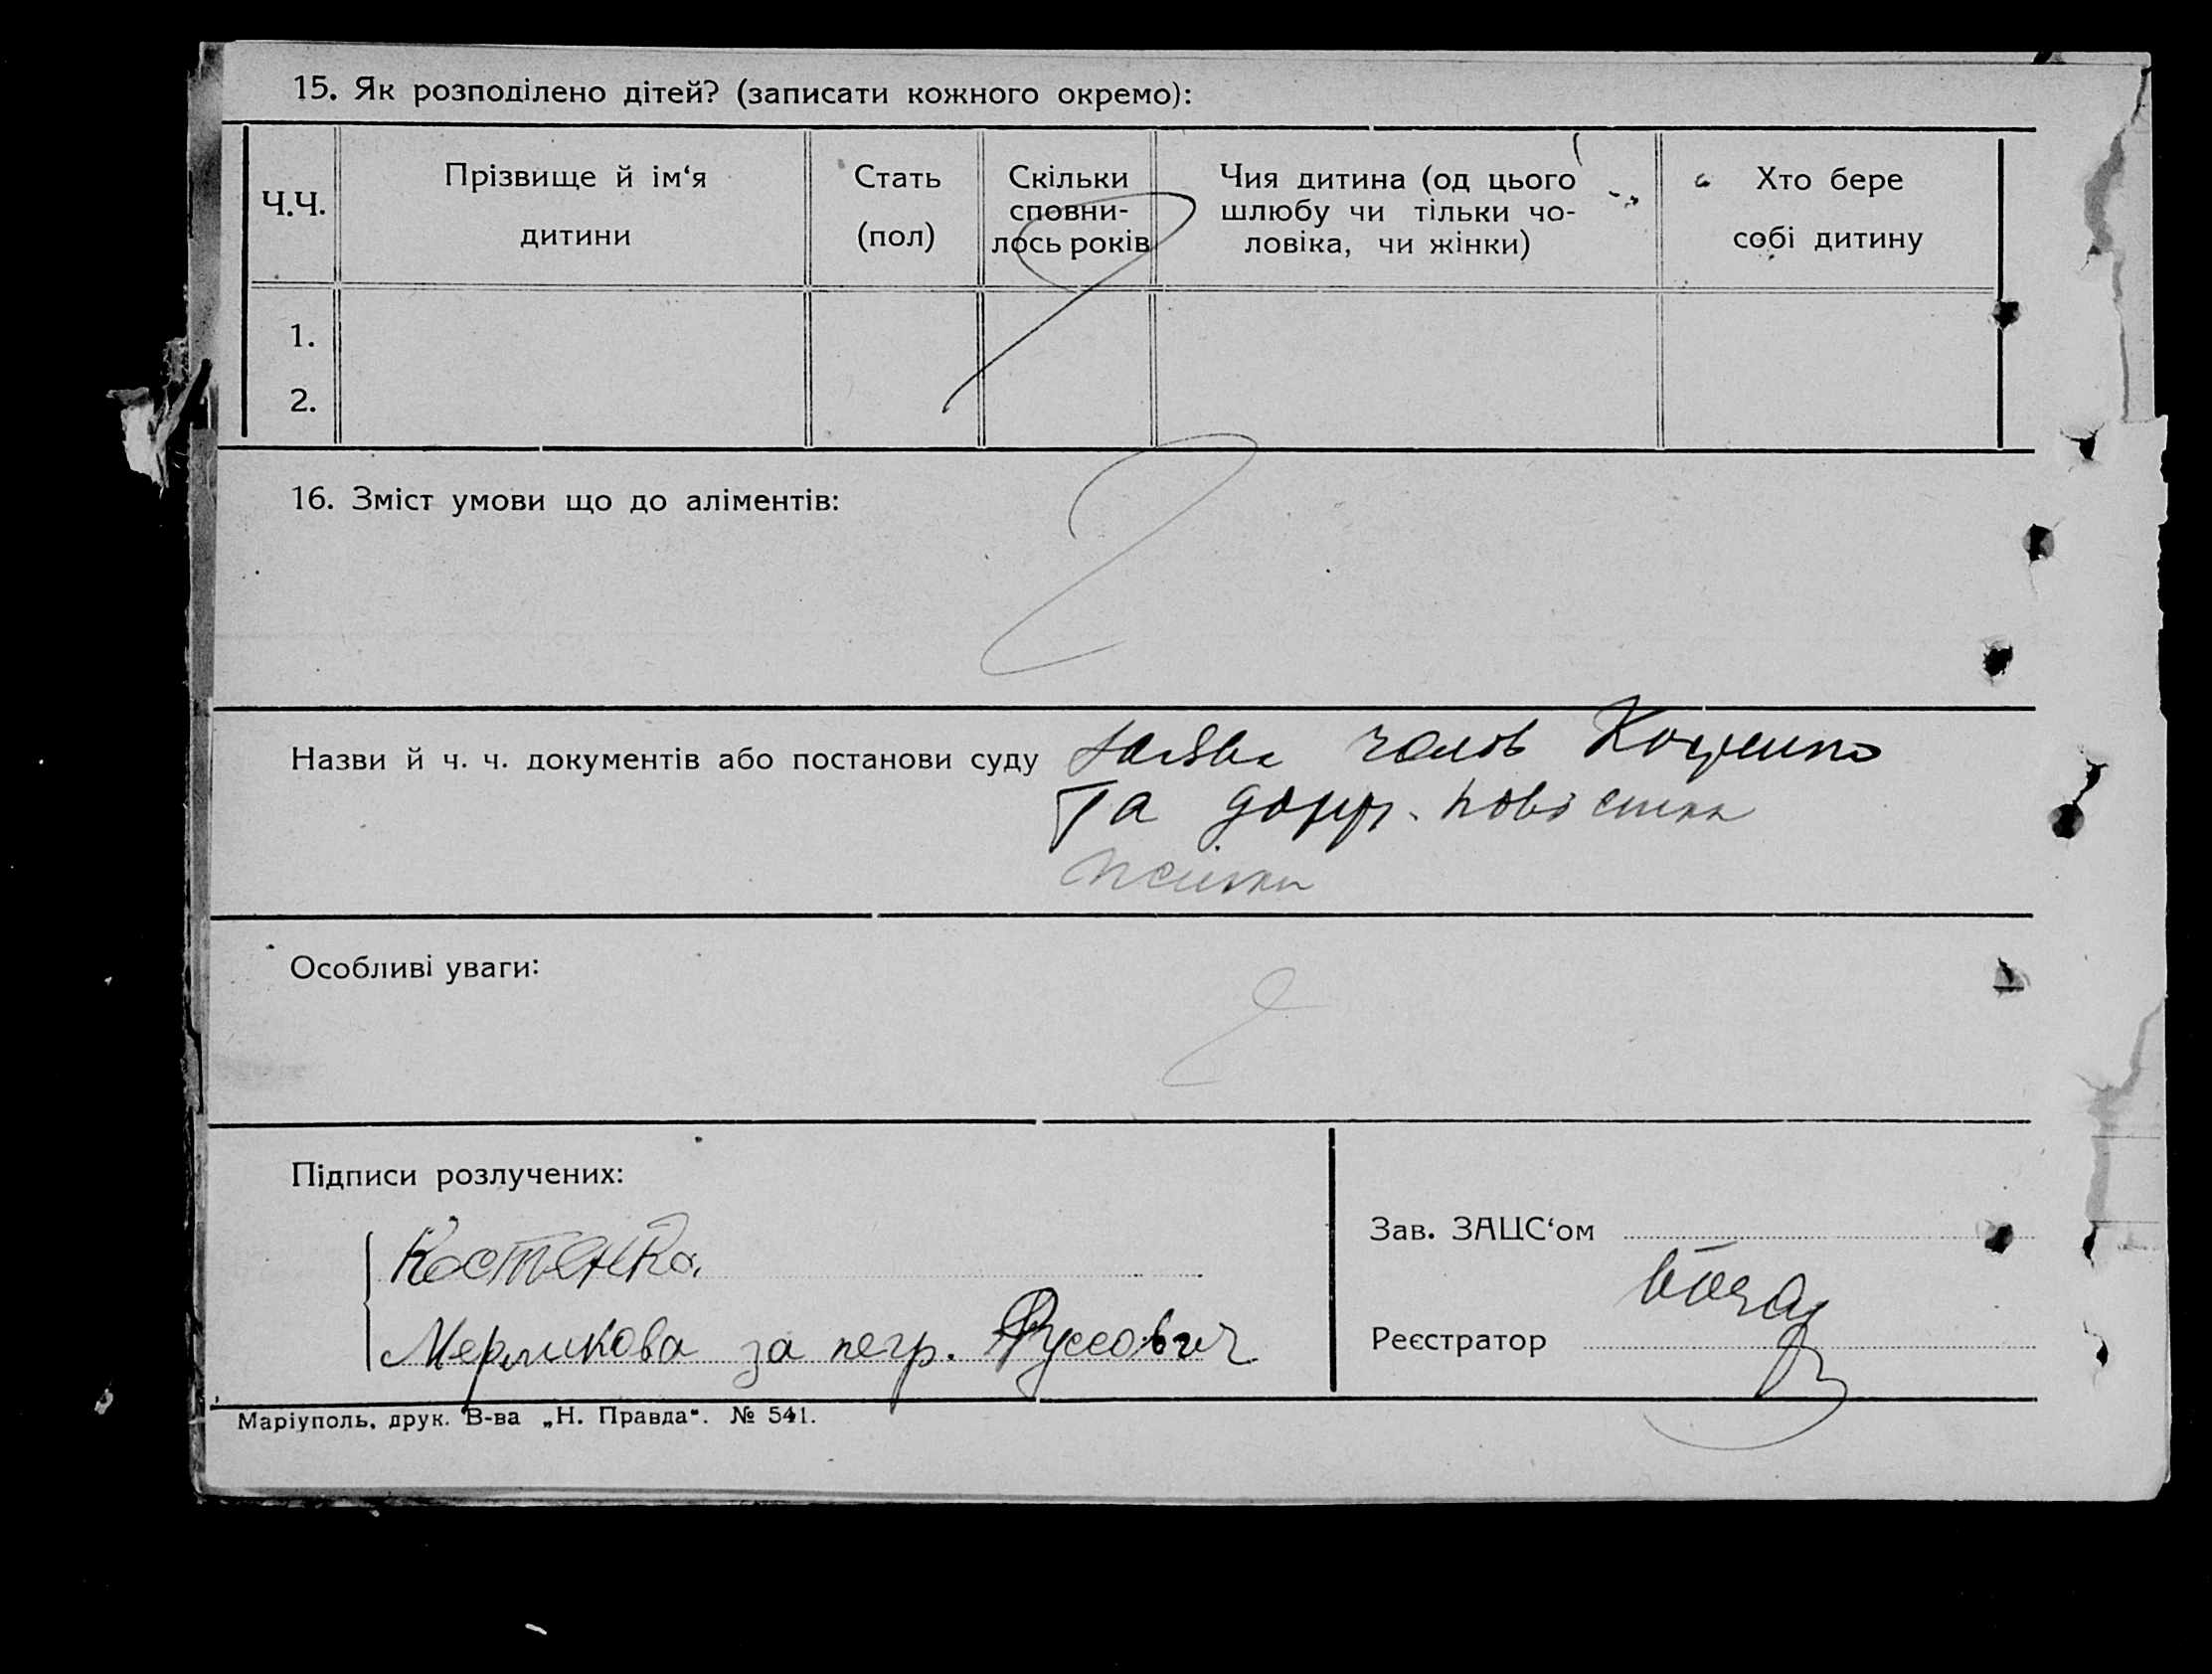 15. Як розподілено дітей? (записати кожного окремо):
Ч.Ч.
Прізвище й ім‘я
дитини
Стать
(пол)
Скільки
сповни-
лось років
Чия дитина (од цього
шлюбу чи тільки чо-
ловіка, чи жінки)
Хто бере
собі дитину
1.
2.
16. Зміст умови що до аліментів:
Назви й ч. ч. документів або постанови суду заява чолов
та повістка
жінки
Особливі уваги:
Підписи розлучених:
Костенко
за негр. Руссович
Зав. ЗАЦС‘ом
Реєстратор
Маріуполь, друк. В-ва „Н. Правда“. № 541.